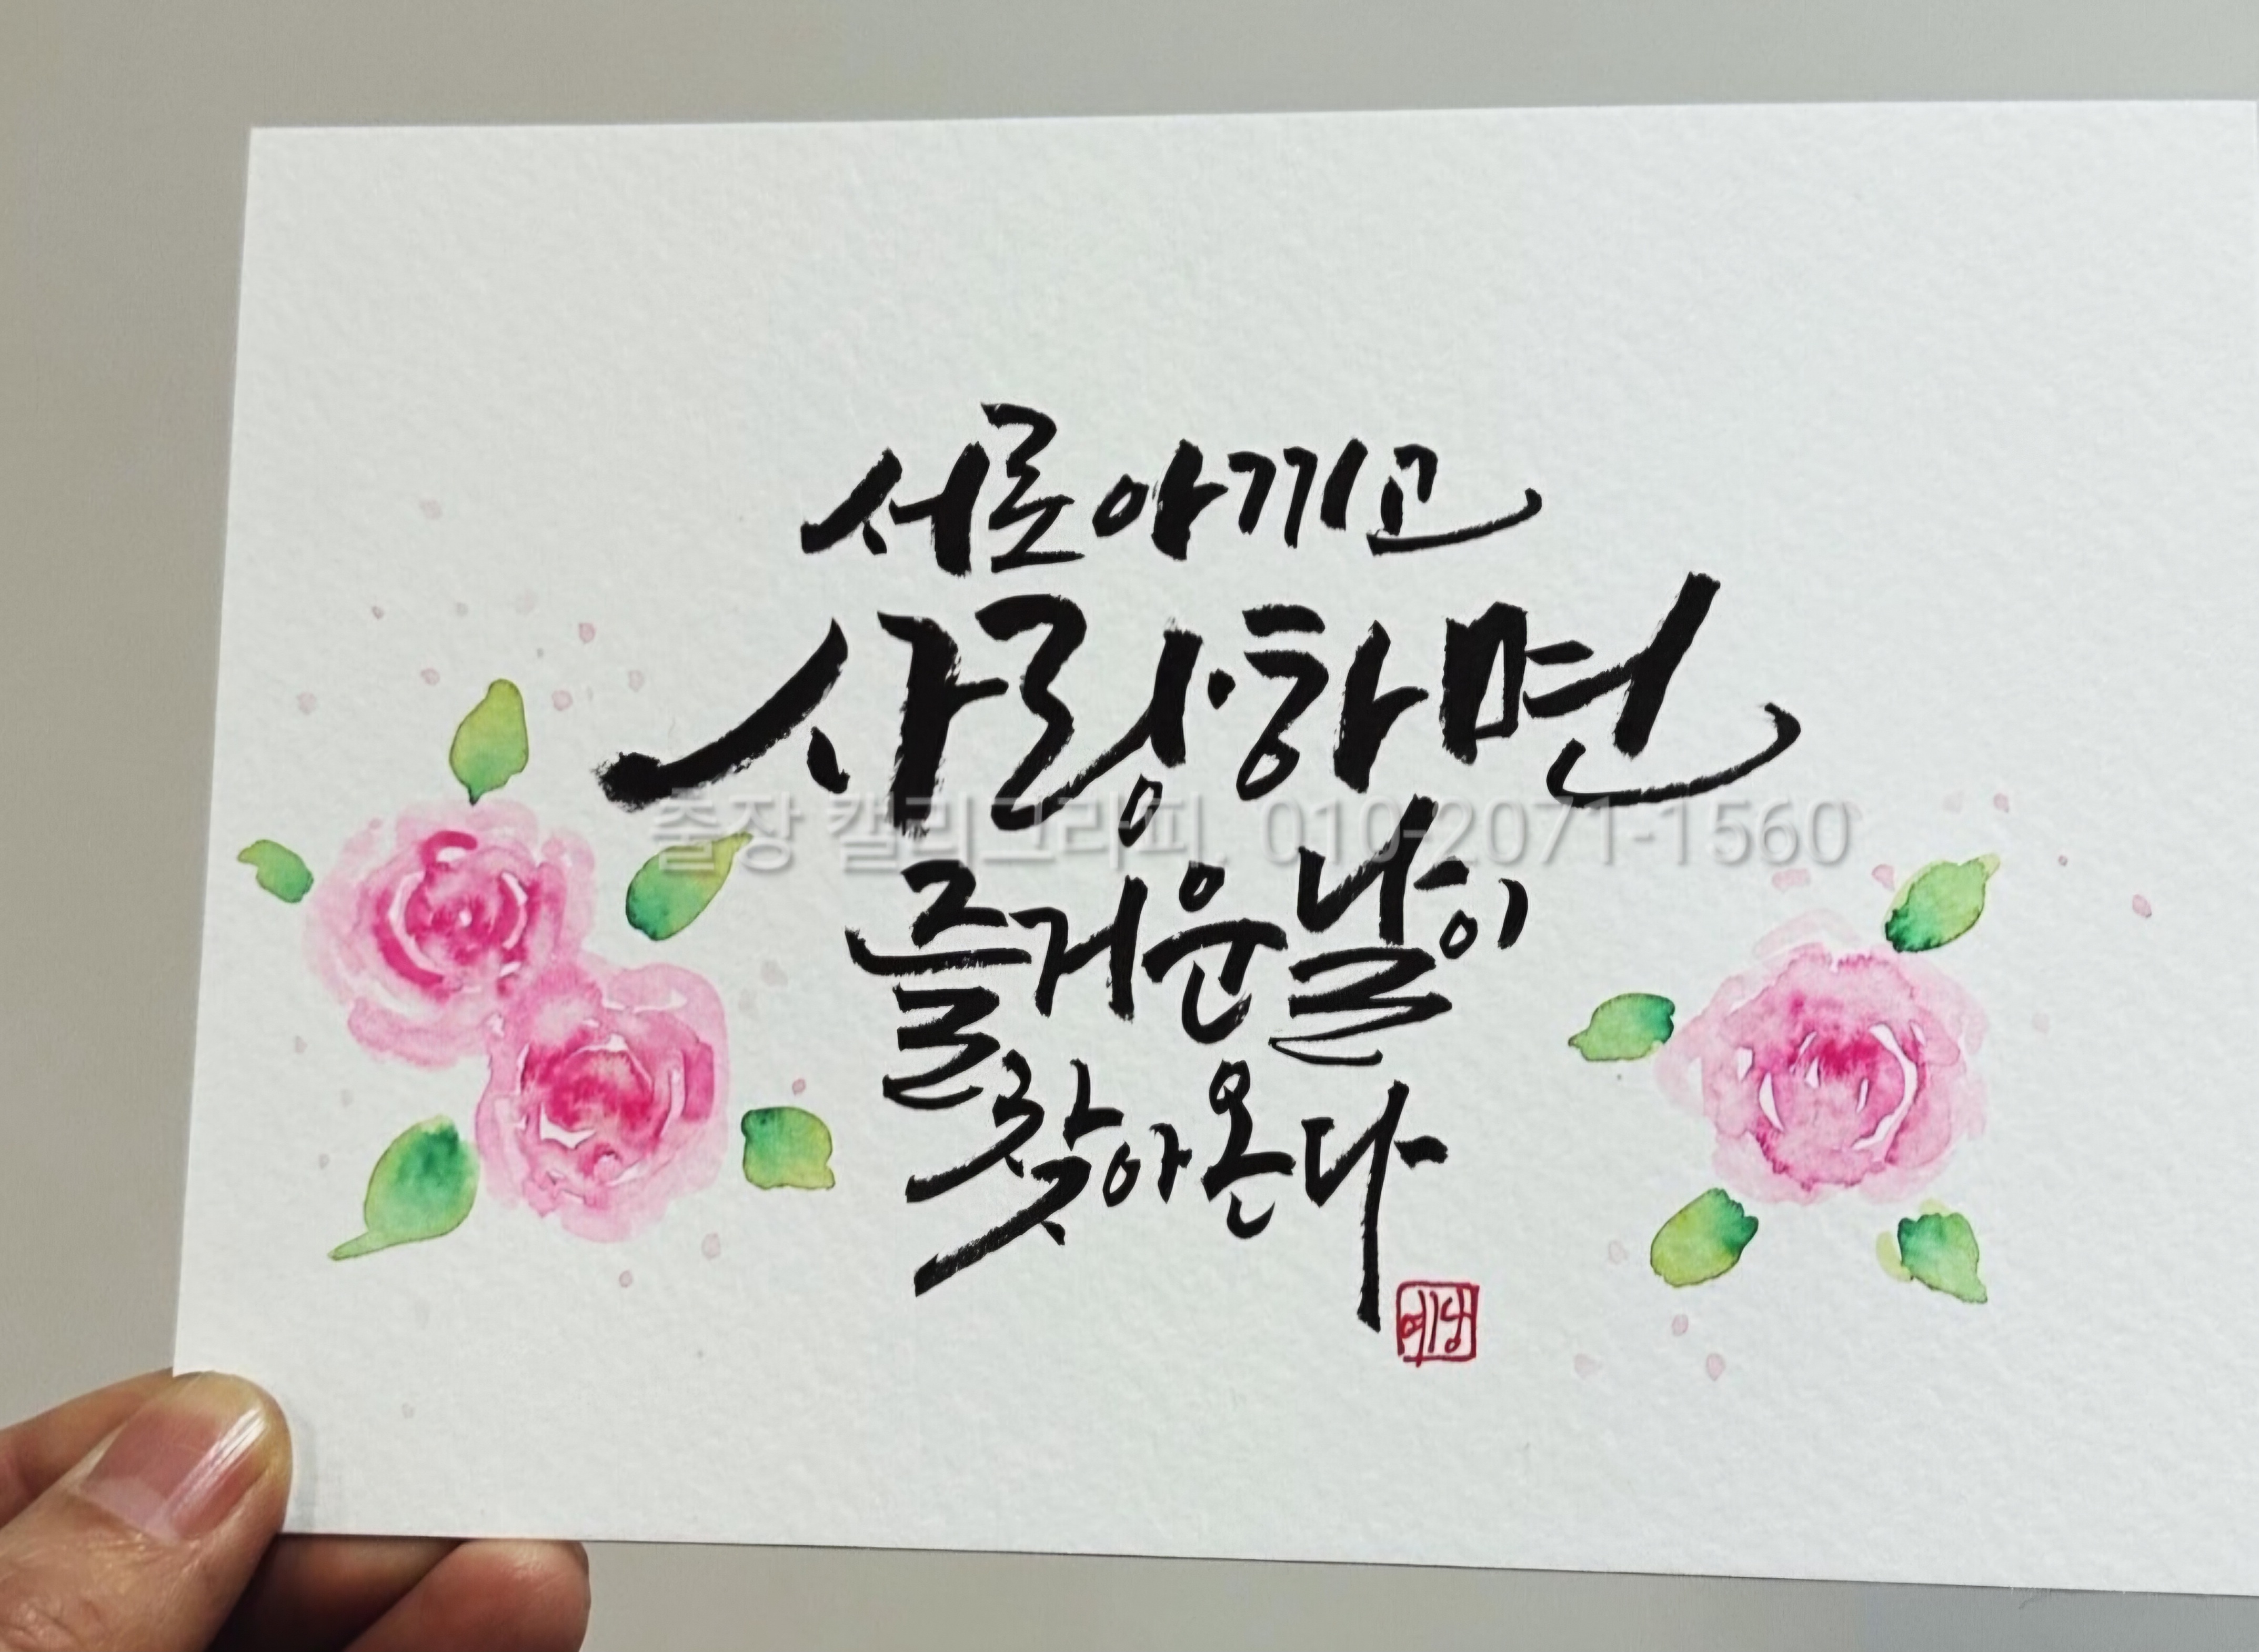 서로 아끼고
사랑하면
출장 캘리그라피. 010-2071-1560
즐거운 날이
찾아온다